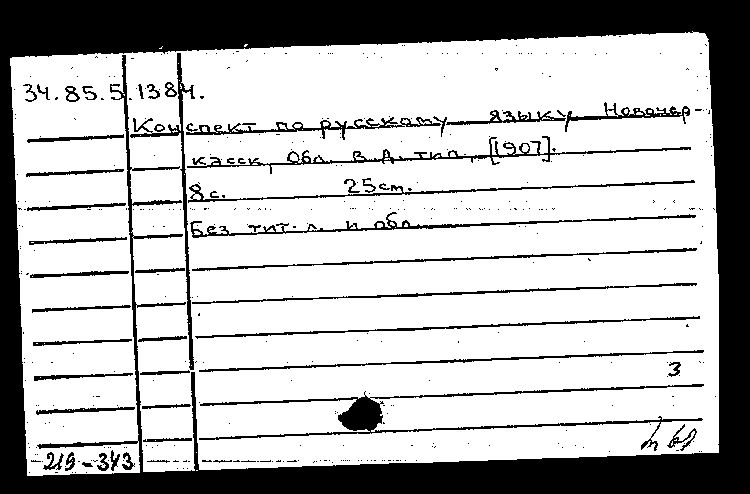 34.85.5.1384.
Конспект по русскому языку Новочер-
касск, Обл. в. Д. тип, [1907].
8 с. 25 см.
Без тит. л. и обл.
3
219-343